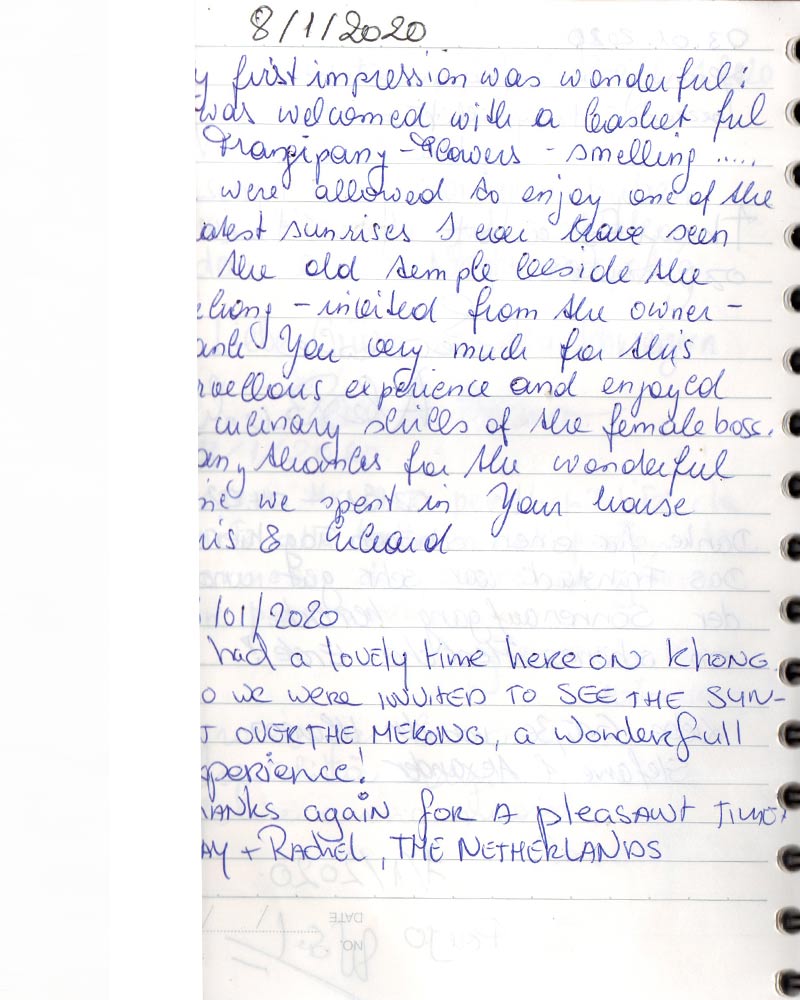 8/1/2020
y first impression was wonderful:
was welcomed with a basket ful
Frangipany-Flowers - smelling .....
were allowed to enjoy one of the
atest sunrises I ever have seen
the old temple beside the
ekong - invited from the owner -
ank You very much for this
rvellous experience and enjoyed
culinary skills of the female boss.
any thanks for the wonderful
me we spent in Your house
ris &
/01/2020
had a lovely time here on Khong
o we were INVITED TO SEE THE SUN-
T OVER THE MEKONG, a wonderfull
perience!
anks again for A pleasant time,
AY + Rachel, THE NETHERLANDS
DATE
NO.